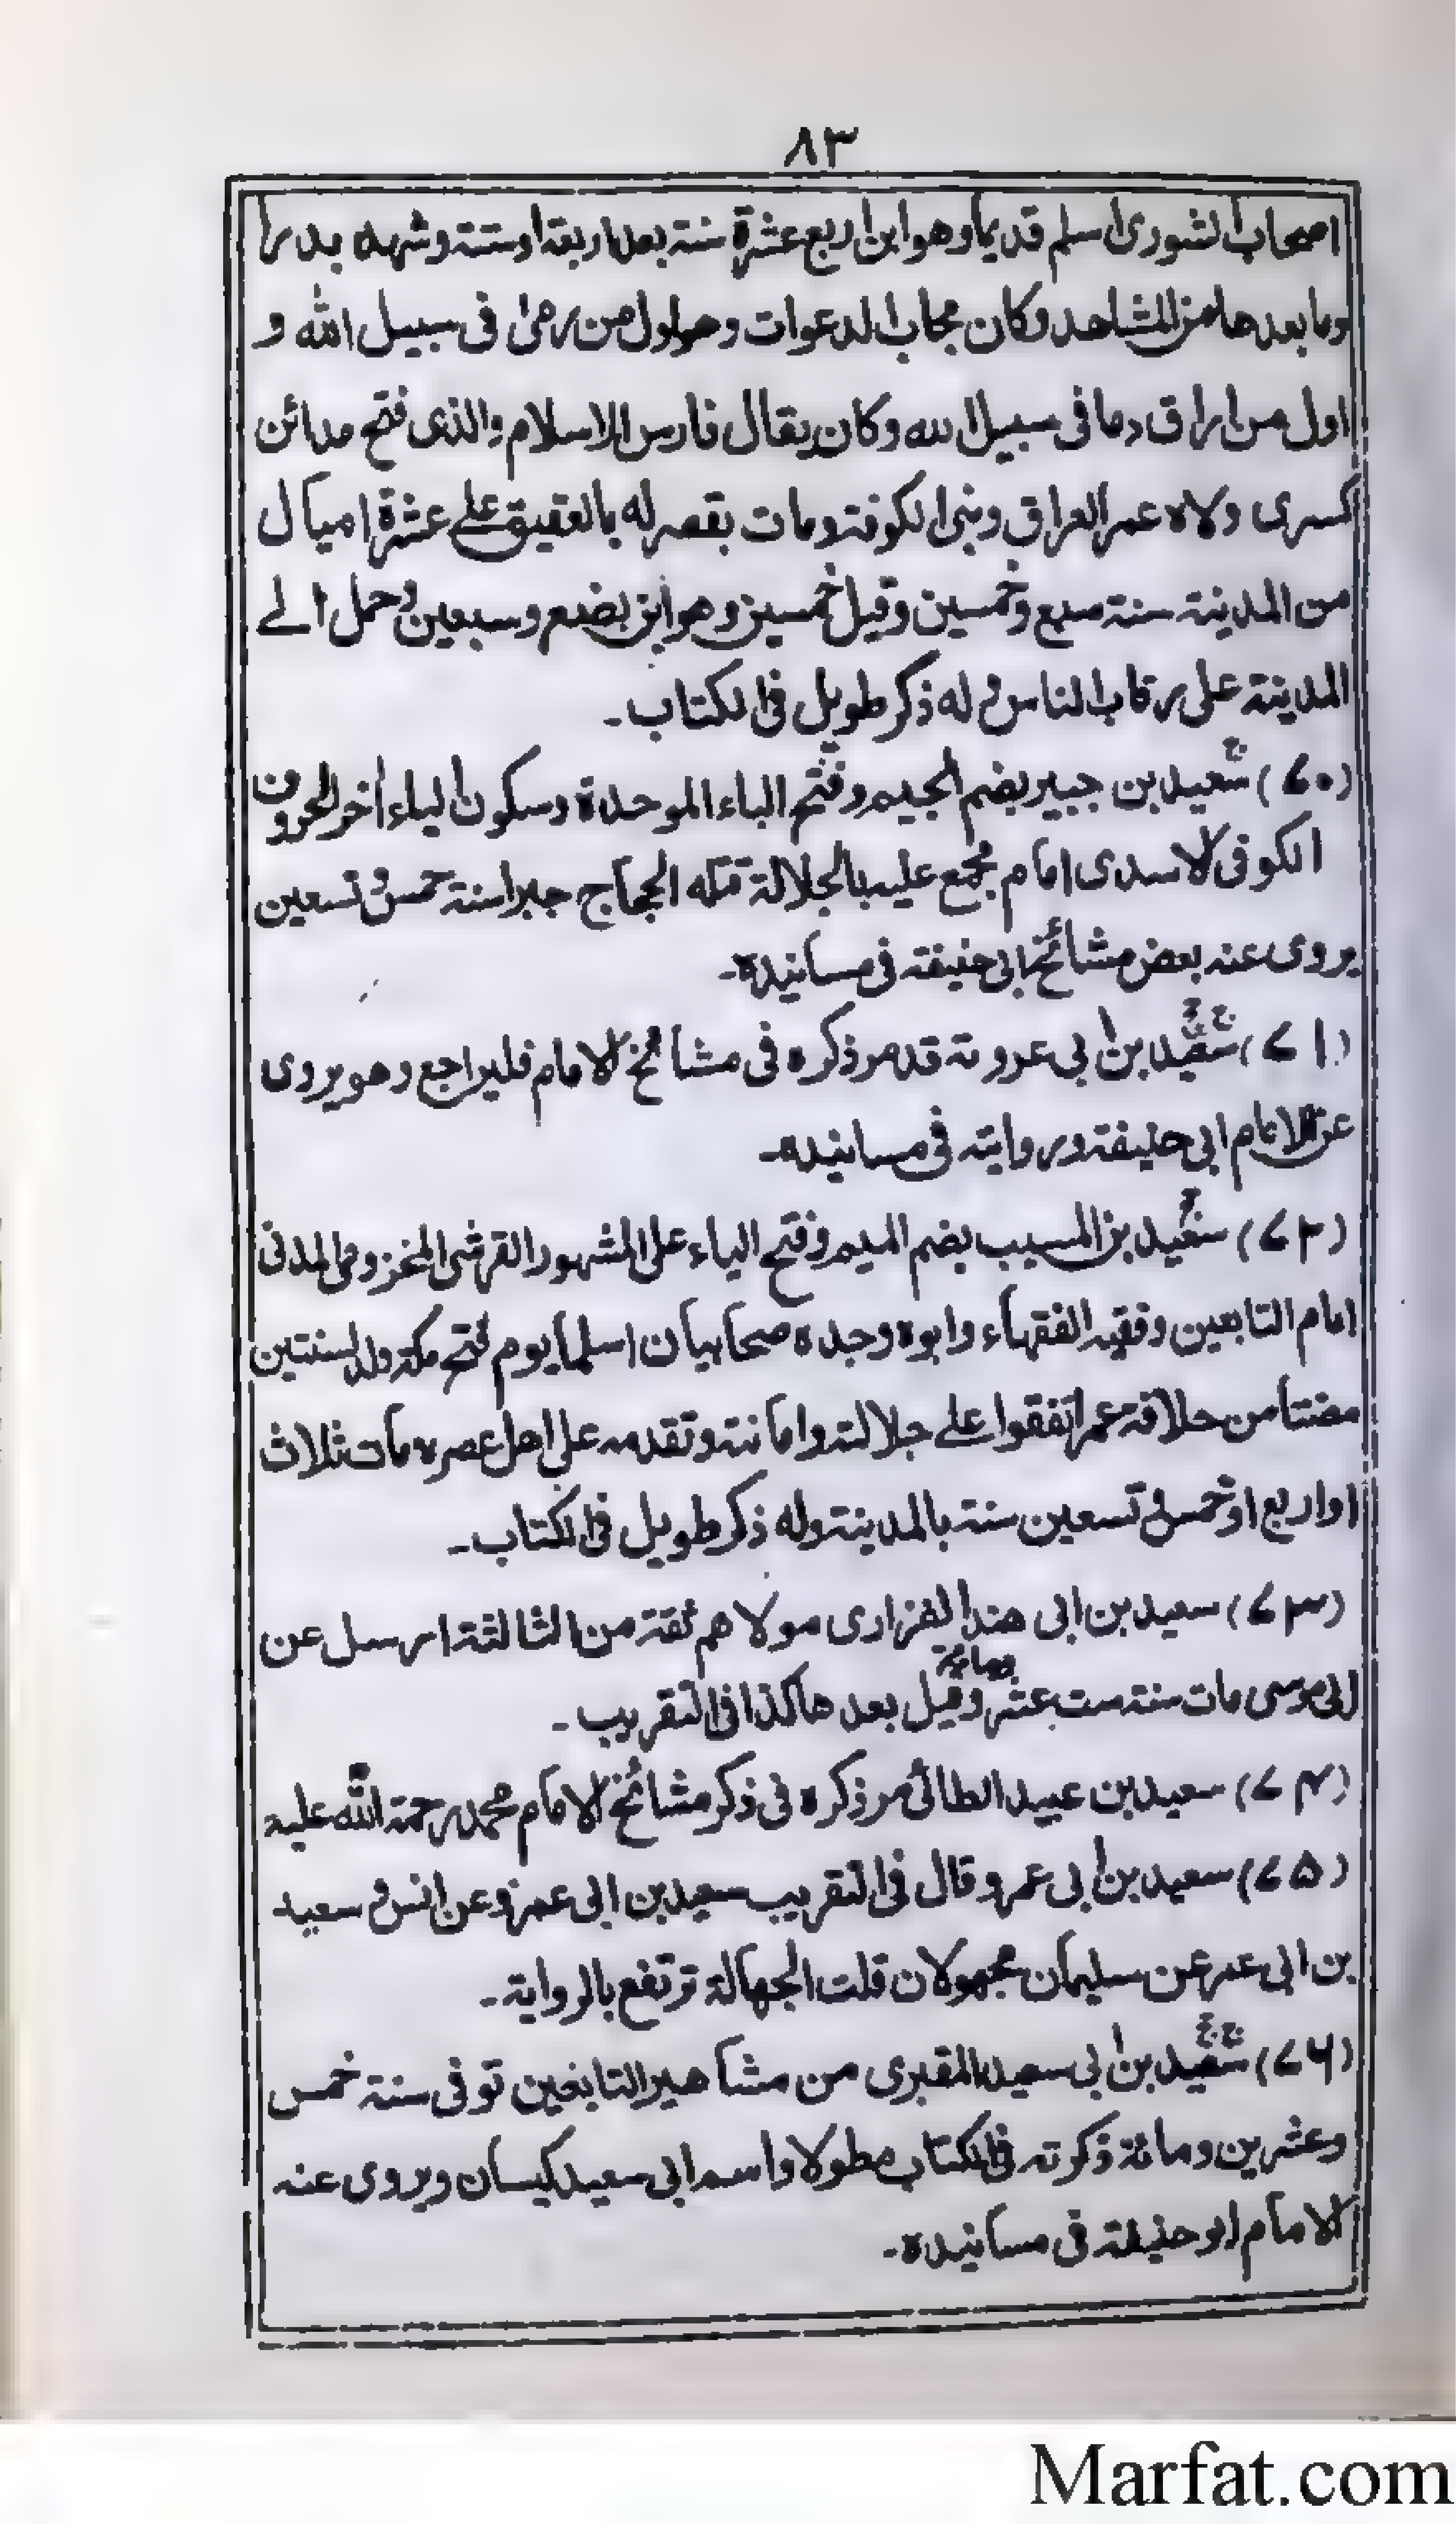 ٨٣
اصحاب الشورى اسلم قديما وهو ابن اربع عشرة سنة بعد اربعة او ستة وشهد بدرا
وما بعدها من المشاهد وكان مجاب الدعوات وهو اول من رمى فى سبيل الله و
اول من اراق دما فى سبيل الله وكان يقال فارس الاسلام والذى فتح مدائن
كسرى ولاه عمر العراق وبنى الكوفة ومات بقصر له بالعقيق على عشرة اميال
من المدينة سنة سبع وخمسين وقيل خمسين وهو ابن بضع وسبعين وحمل الے
المدينة على رقاب الناس وله ذكر طويل فى الكتاب۔
(۷۰) سعيد بن جبير بضم الجيم وفتح الباء الموحدة وسكون الياء أخر الحروف
الكوفى الاسدى امام مجمع عليه بالجلالة قتله الحجاج جبرا سنة خمس وتسعين
يروى عنه بعض مشائخ ابى حنيفة فى مسانيده۔
(۷۱) سعيد بن ابى عروبة قد مر ذكره فى مشائخ الامام فليراجع وهو يروى
عن الامام ابى حنيفة وروايته فى مسانيده۔
(۷۲) سعيد بن المسيب بضم الميم وفتح الياء على المشهور القرشى المخزومى المدنى
امام التابعين وفقيه الفقهاء وابوه وجده صحابيان اسلما يوم فتح مكة ولد لسنتين
مضتا من خلافة عمر اتفقوا على جلالته وامانته وتقدمه على اهل عصره مات ثلاث
او اربع او خمس وتسعين سنة بالمدينة وله ذكر طويل فى الكتاب۔
(۷۳) سعيد بن ابى هند الفزارى مولاهم ثقة من الثالثة ارسل عن
ابى موسى مات سنة ست عشر ومائة وقيل بعدها كذا فى التقريب۔
(۷۴) سعيد بن عبيد الطائى مر ذكره فى ذكر مشائخ الامام محمد رحمة الله عليه
(۷۵) سعيد بن ابى عمرو قال فى التقريب سعيد بن ابى عمرو عن انس وسعيد
بن ابى عمر عن سليمان مجهولان قلت الجهالة ترتفع بالرواية۔
(۷۶) سعيد بن ابى سعيد المقبرى من مشاهير التابعين توفى سنة خمس
وعشرين ومائة ذكرته فى الكتاب مطولا واسم ابى سعيد كيسان ويروى عنه
الامام ابو حنيفة فى مسانيده۔
Marfat.com